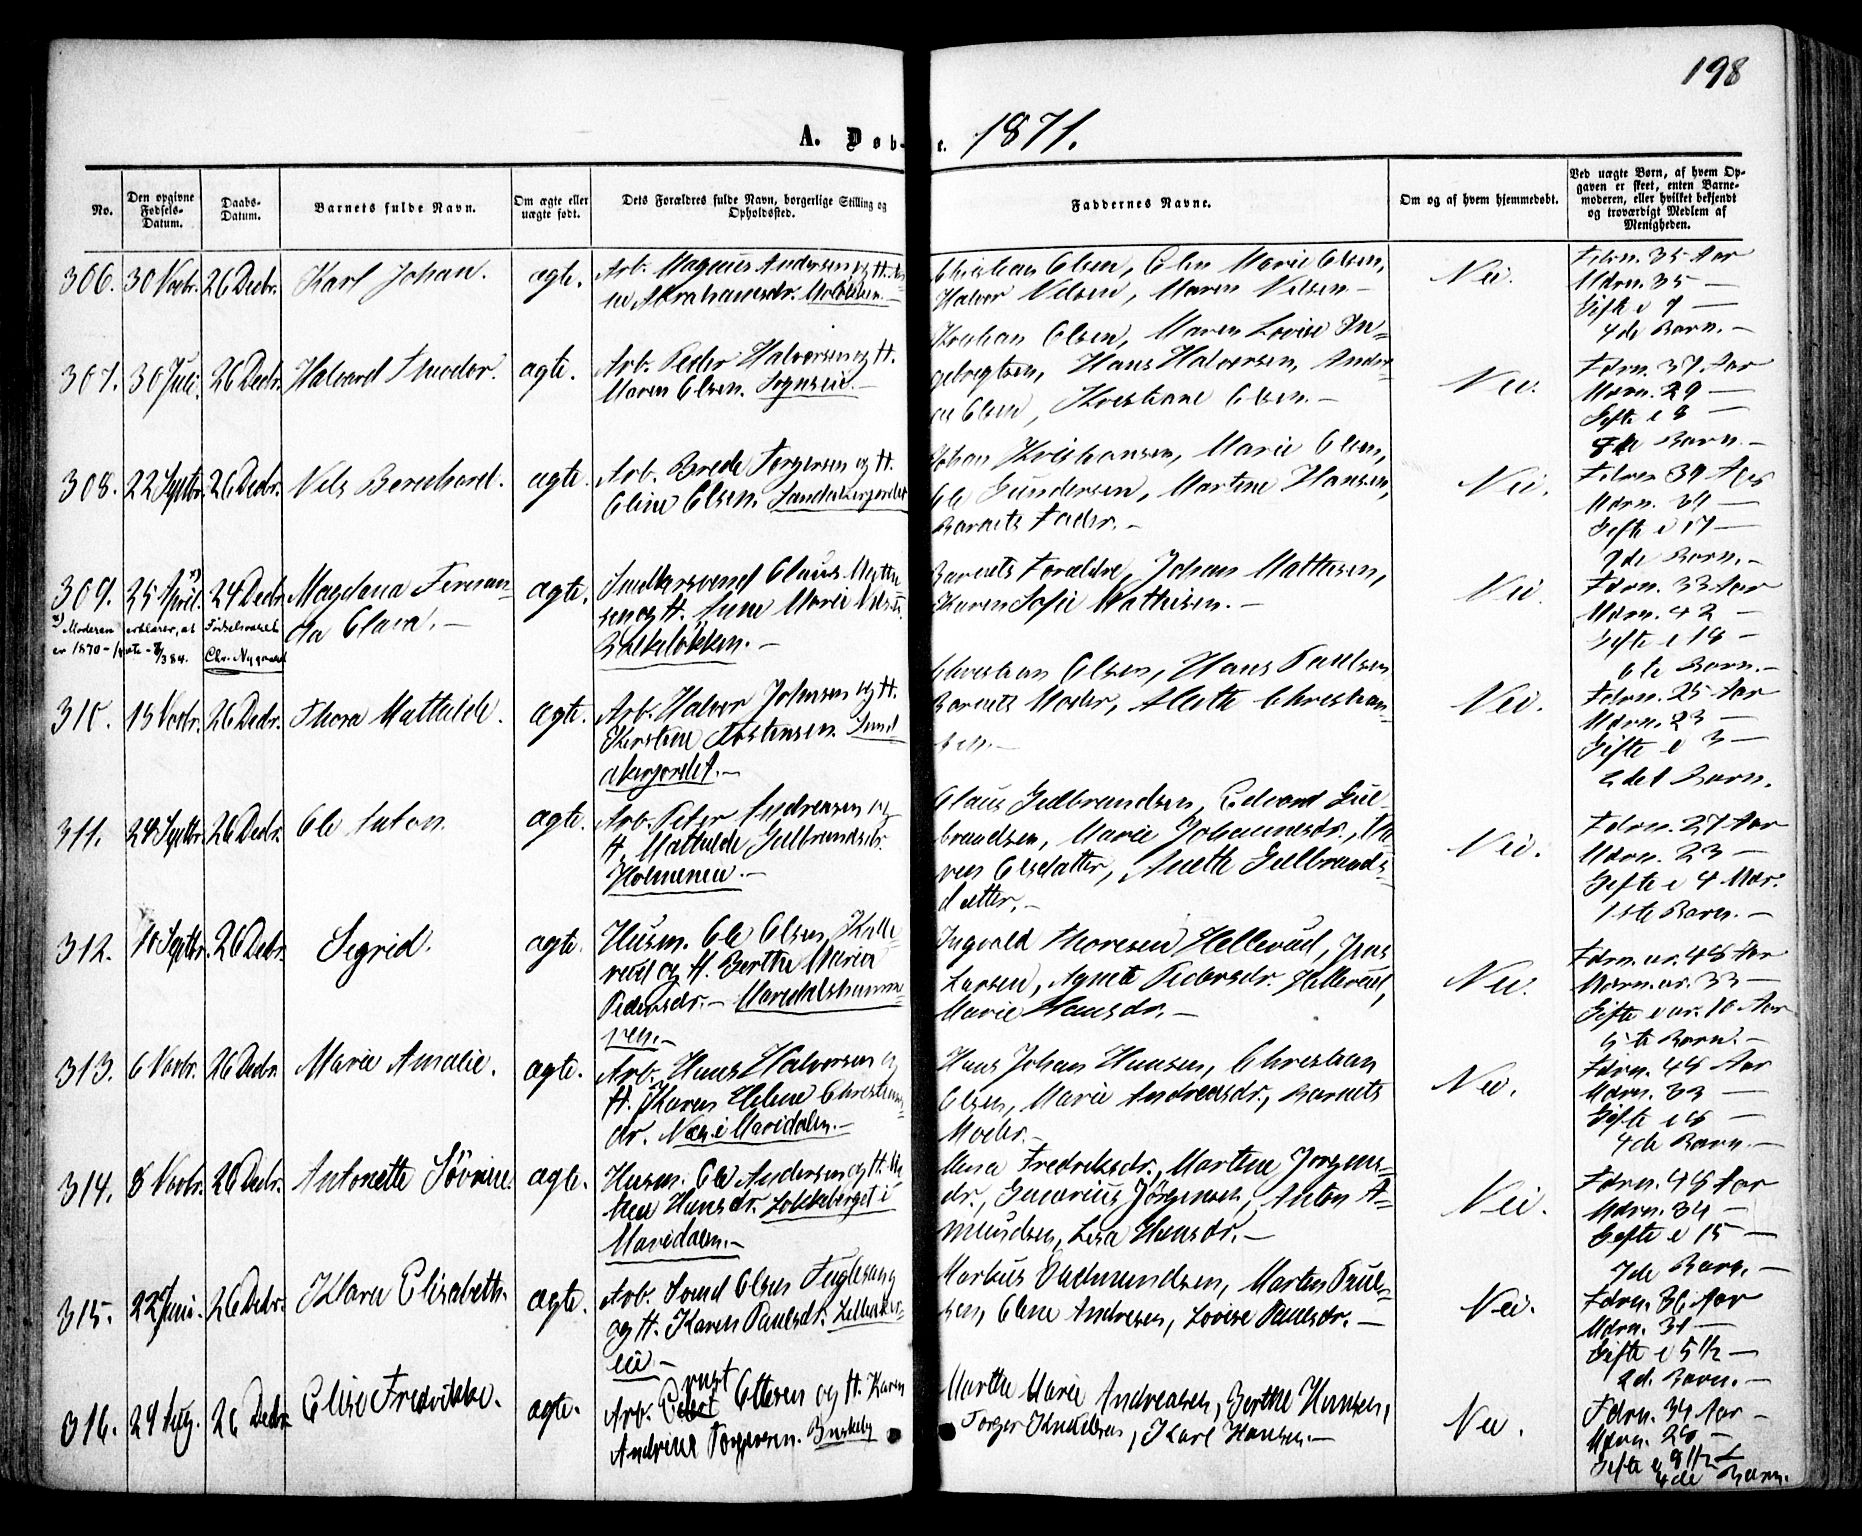 198
A. Døb- e. 1871.
No.
Den opgivne Fødsels-Datum.
Daabs-Datum.
Barnets fulde Navn.
Om ægte eller uægte født.
Dets Forældres fulde Navn, borgerlige Stilling og Opholdssted.
Faddernes Navne.
Om og af hvem hjemmedøbt.
Ved uægte Børn, af hvem Opgaven er skeet, enten Barnemoderen, eller hvilket bekjendt og troværdigt Medlem af Menigheden.
306. 30 Novbr. 26 Decbr. Karl Johan. ægte. Arb. Magnus Andersen og H.
ne Abrahamsdr.
Christian Olsen, Elen Marie Olsen,
Halvor Nilsen, Maren Nilsen –
Nei.
Fdrn. 35 Aar
Mdrn. 35 –
Gifte i 7 –
4de Barn. –
307. 30 Juli. 26 Decbr. Halvard Theodor. ægte. Arb. Peder Halvorsen og H.
Maren Olsen. Sognsveien. –
Kristian Olsen, Maren Lovise In-
gebregtsen, Hans Halvorsen, Andri-
ne Olsen, Kristiane Olsen. –
Nei.
Fdrn. 37 Aar
Mdrn. 29 –
Gifte i 8 –
Barn. –
308. 22 Septbr. 26 Decbr. Nils Bernhard. ægte. Arb. Brede Torgersen og H.
Oline Olsen. Sandakerjordet
Johan Kristiansen, Marie Olsen,
Ole Gundersen, Martine Hansen,
Barnets Fader. –
Nei.
Fdrn. 39 Aar
Mdrn. 34 –
Gifte i 17 –
7de Barn. –
309. 25 April. *) 24 Decbr. Magdana Fernan-
da Clara. ægte. Smedsvend Claus Mathi-
sen og H. Anne Marie
Barnets Forældre, Johan Mathisen,
Karen Sofie Mathisen. –
Nei.
Fdrn. 33 Aar
Mdrn. 42 –
Gifte i 18 –
6te Barn. –
*) Moderen erklærer, at Fødselsaaret
er 1870 –
Chr. Nygaard
310. 15 Novbr. 26 Decbr. Thora Mathilde. ægte. Arb. Halvor Johnsen og H.
Kirstine Tostensen. Sand-
akerjordet. –
Christian Olsen, Hans Paulsen
Barnets Moder, Alette Christian-
sen. –
Nei.
Fdrn. 25 Aar
Mdrn. 23 –
Gifte i 3 –
2det Barn.
311. 24 Septbr. 26 Decbr. Ole Anton. ægte. Arb. Peter Andreasen og
H. Mathilde Gulbrandsdr.
Holmenveien. –
Claus Gulbrandsen, Edvard Gul-
brandsen, Marie Johannesdr., Ma-
ren Olsdatter, Anette Gulbrands-
datter. –
Nei.
Fdrn. 27 Aar
Mdrn. 23 –
Gifte i 4 Mdr.
1ste Barn. –
312. 10 Septbr. 26 Decbr. Sigrid. ægte. Husm. Ole Olsen
og H. Berthe Maria
Pedersdr. – Maridalshamme-
ren. –
Ingvald Thoresen Hellerud, Jens
Larsen, Agnete Pedersdr. Hellerud,
Marie Hansdr. –
Nei.
Fdrn. ca. 48 Aar
Mdrn. ca. 33 –
Gifte i ca. 10 Aar
5te Barn. –
313. 6 Novbr. 26 Decbr. Marie Amalie. ægte. Arb. Hans Halvorsen og
H. Karen Helene Christians-
dr. Næs i Maridalen. –
Hans Johan Hansen, Christian
Olsen, Marie Andreasdr., Barnets
Moder. –
Nei.
Fdrn. 44 Aar
Mdrn. 33 –
Gifte i 6 –
4de Barn. –
314. 8 Novbr. 26 Decbr. Antonette Søvrine. ægte. Husm. Ole Andersen og H.
Hansdr. Løkkeberget i
Maridalen. –
Mina Fredriksdr., Martine Jørgens-
dr., Gunerius Jørgensen, Anton A-
mundsen, Lisa Hansdr. –
Nei.
Fdrn. 45 Aar
Mdrn. 34 –
Gifte i 15 –
7de Barn. –
315. 22 Juni. 26 Decbr. Klara Elisabeth. ægte. Arb. Svend Olsen Fuglesang
og H. Karen Paulsdr. Lilleaker-
vei –
Markus Gudmundsen, Martin Paul-
sen, Oline Andresen, Lovise Paulsdr. –
Nei.
Fdrn. 36 Aar
Mdrn. 31 –
Gifte i 5 1/2 –
2d. Barn. –
316. 29 Aug. 26 Decbr. Elise Fredrikke. ægte. Arb. Ottersen og H. Karen
Andrine Torgersen. Buskeby
Marthe Marie Andreasen, Berthe Hansen,
Torger Knudsen, Karl Hansen. –
Nei.
Fdrn. 34 Aar –
Mdrn. 28 –
Gifte i 8 1/2 –
4de Barn.